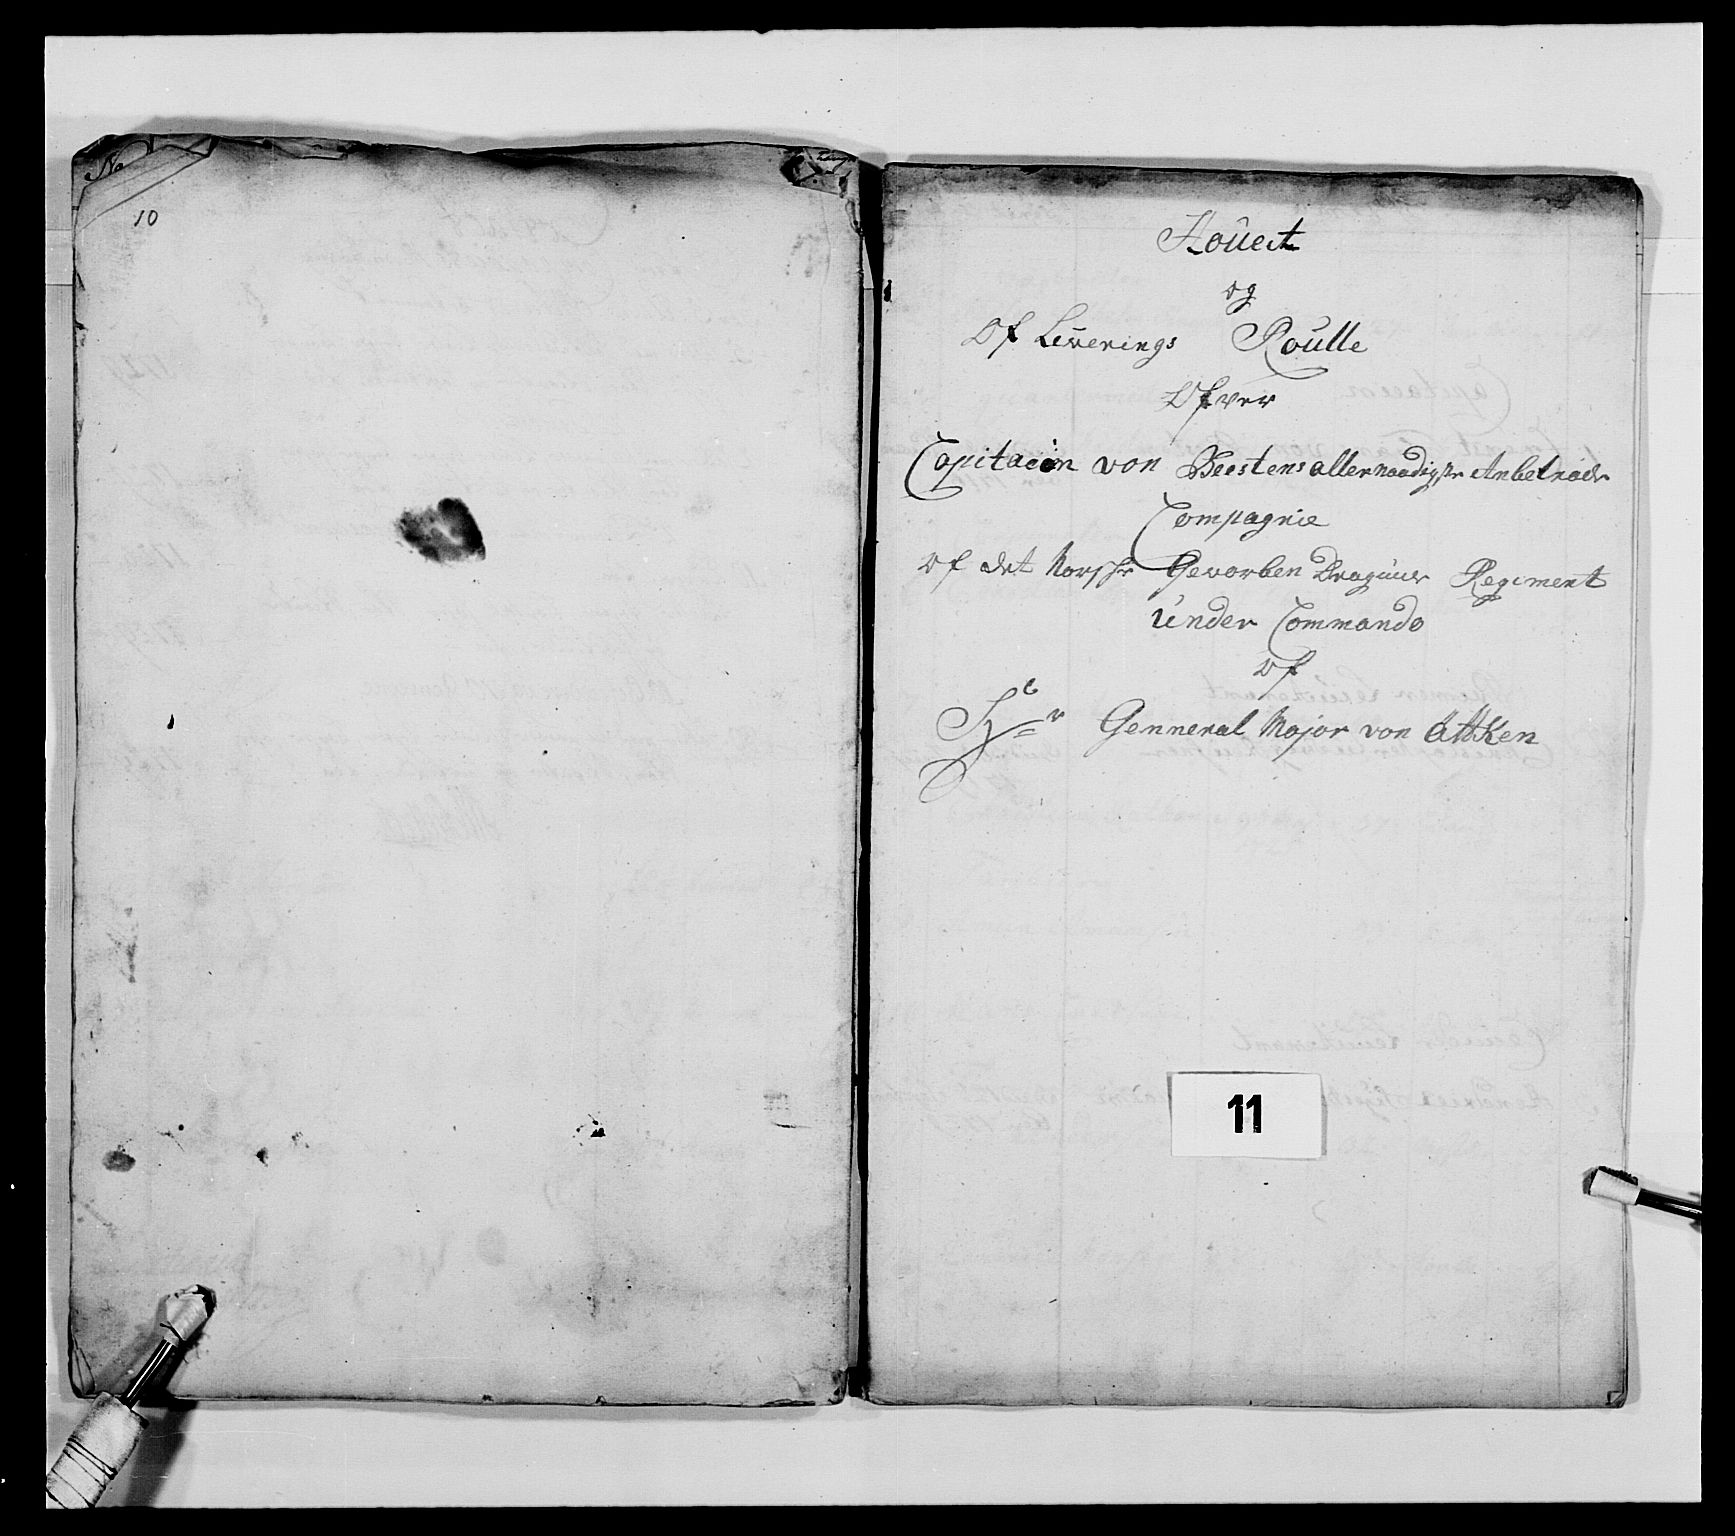 No
10
Houect
og
Of Leverings Roulle
Ofver
Capitaein von Beestens allernaadigste Anbetrode
Compagnie
Of det Norshe Gevorben Draguner Regiment
Under Commando
Of
Hr Genneral Major von Attken
11